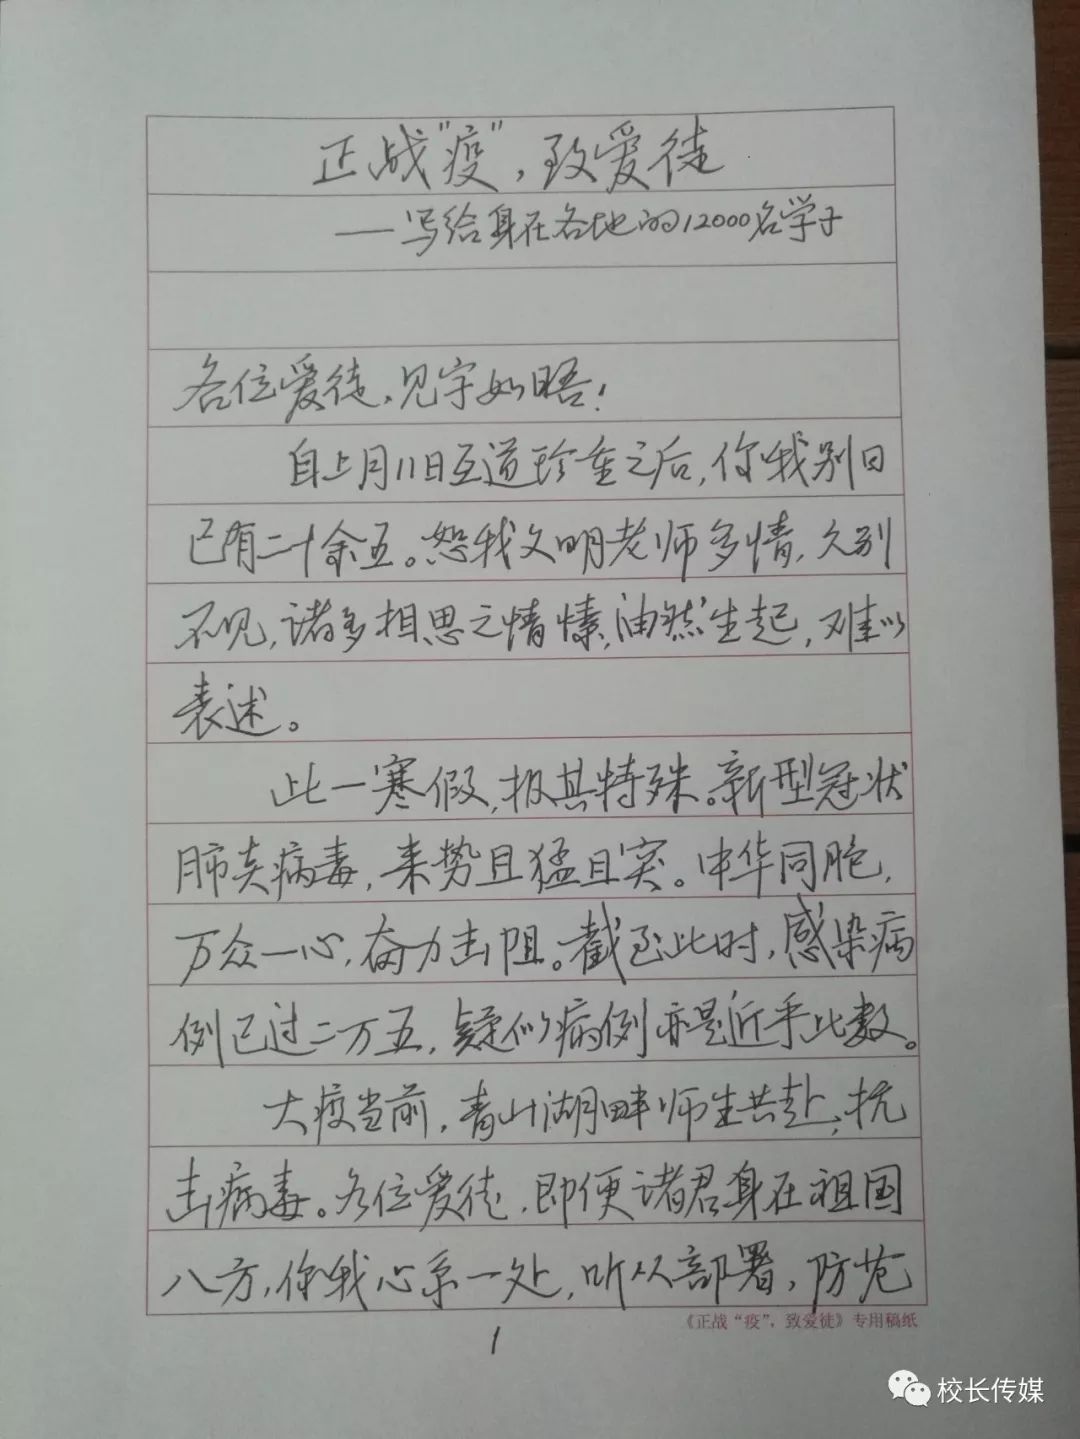 正战“疫”，致爱徒
——写给身在各地的12000名学子
各位爱徒，见字如晤！
自上月11日互道珍重之后，你我别日
已有二十余五。恕我文明老师多情，久别
不见，诸多相思之情愫，油然生起，难以
表述。
此一寒假，极其特殊。新型冠状
肺炎病毒，来势且猛且突。中华同胞，
万众一心，奋力击阻。截至此时，感染病
例已过二万五，疑似病例亦是近乎此数。
大疫当前，青山湖畔师生共赴，抗
击病毒。各位爱徒，即便诸君身在祖国
八方，你我心系一处，听从部署，防范
《正战“疫”，致爱徒》专用稿纸
1
校长传媒